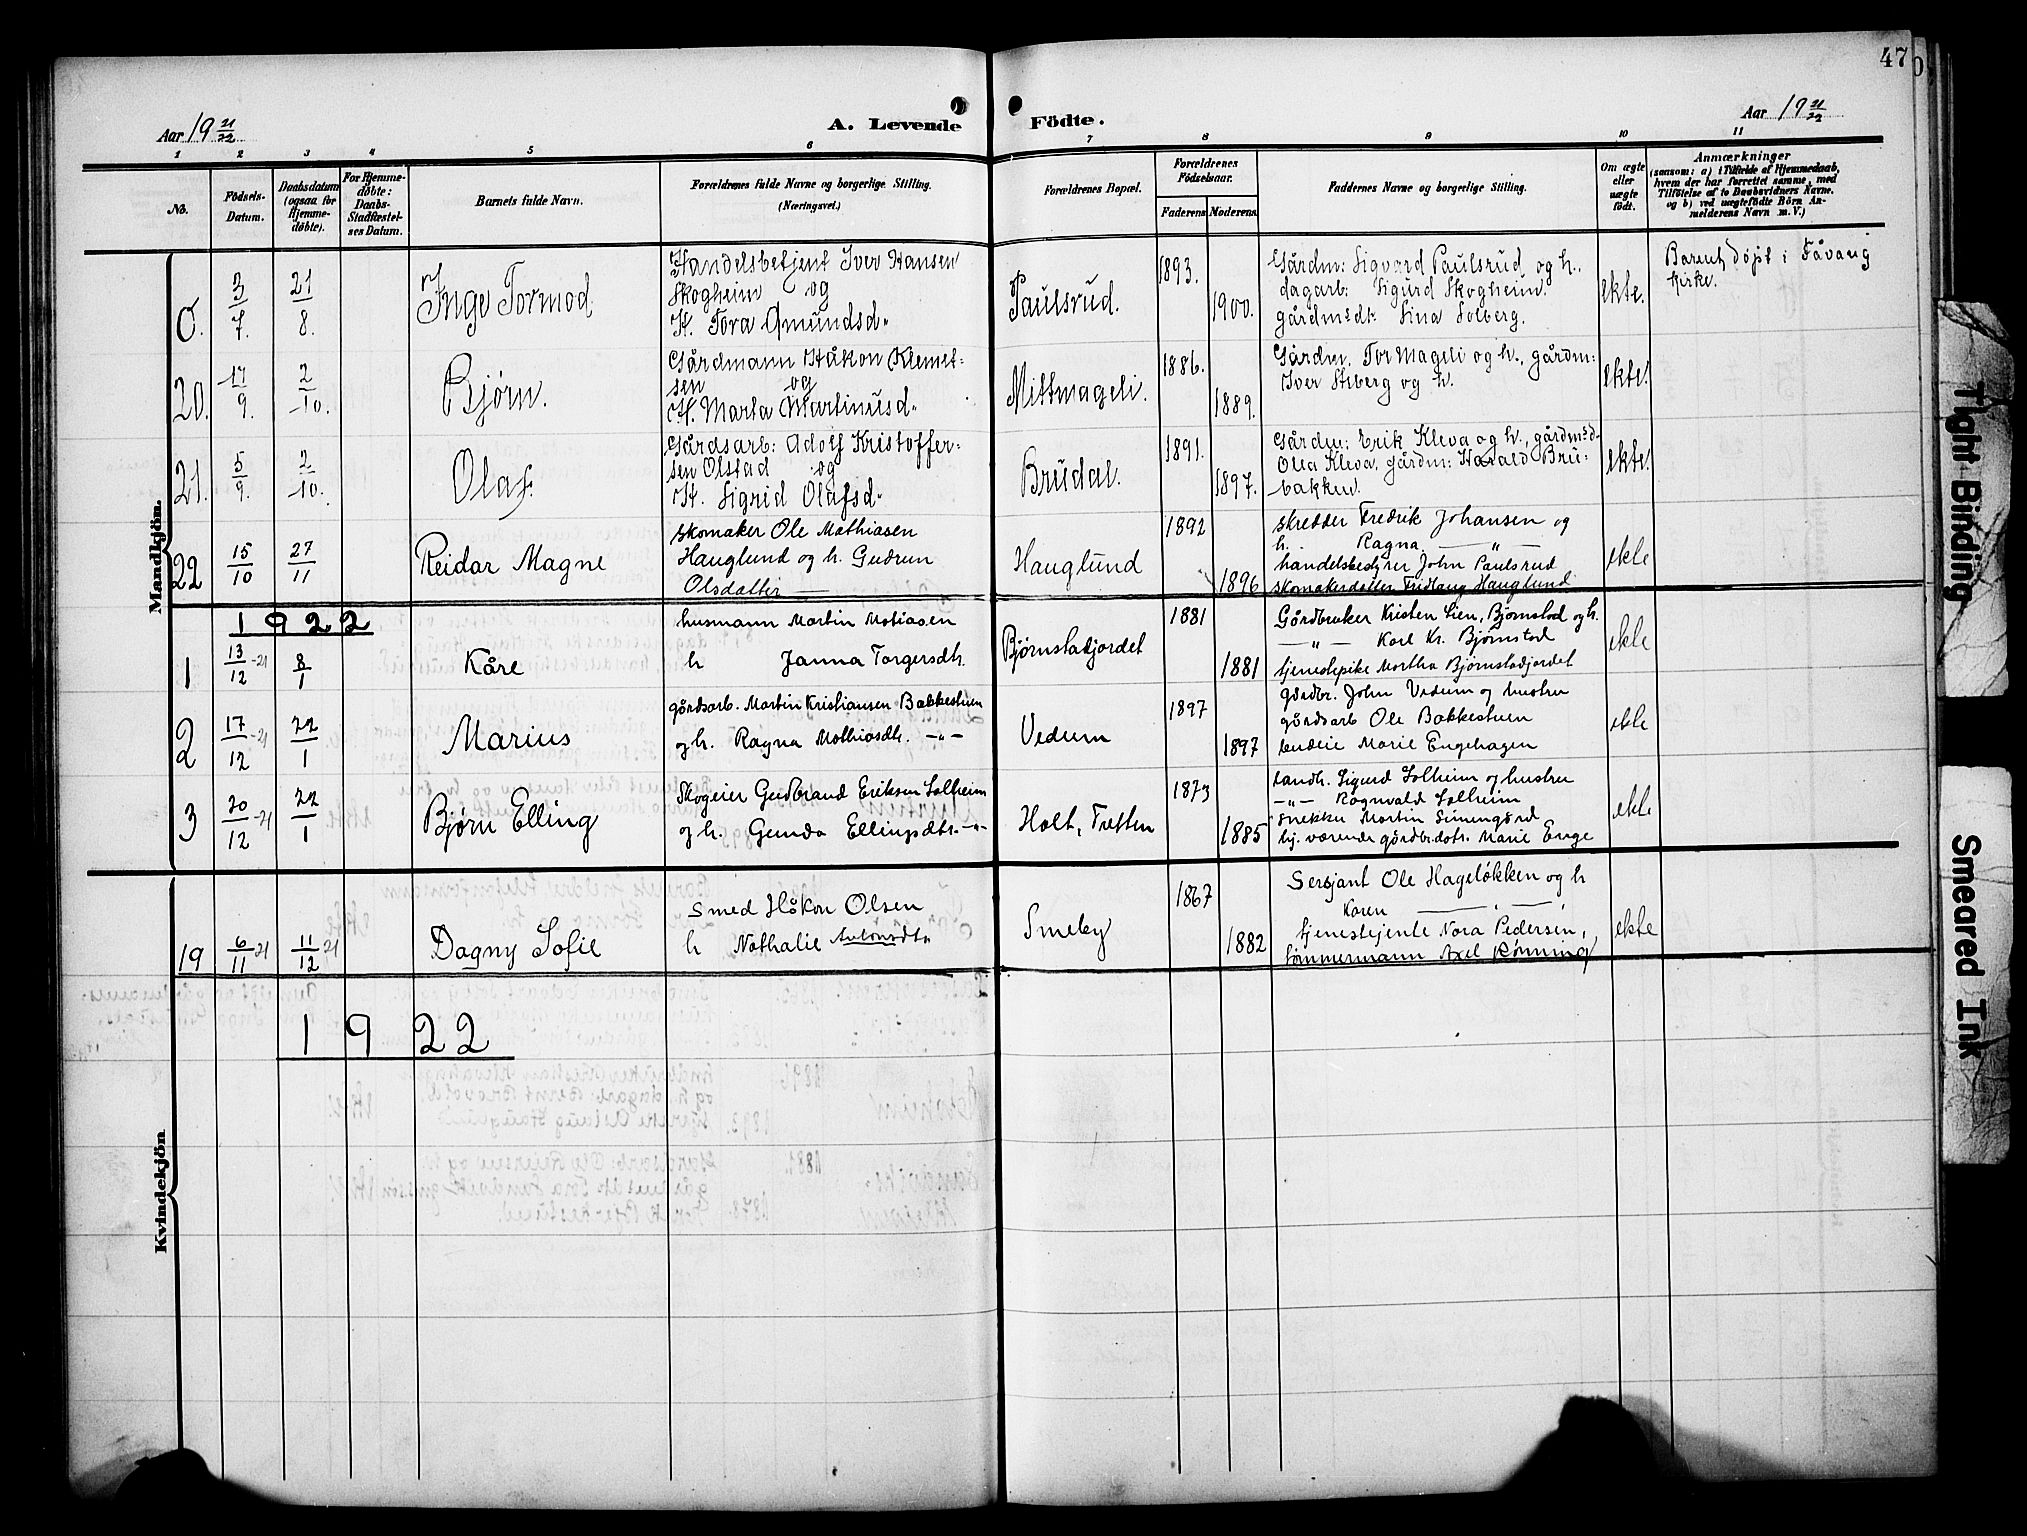 47
Aar 19 21/22
A. Levende Födte.
Aar 19 21/22
1 2 3 4 5 6 7 8 9 10 11
No.
Födsels-Datum.
Daabsdatum (ogsaa for Hjemme-döbte).
For Hjemme-døbte: Daabs-Stadfæstel-ses Datum.
Barnets fulde Navn.
Forældrenes fulde Navne og borgerlige Stilling. (Næringsvei.)
Forældrenes Bopæl.
Forældrenes Födselsaar.
Faderens Moderens
Faddernes Navne og borgerlige Stilling.
Om ægte eller uægte födt.
Anmærkninger
(saasom: a) i Tilfælde af Hjemmedaab, hvem der har forrettet samme, med Tilföielse af to Daabsvidners Navne, og b) ved uægtefödte Börn An-melderens Navn m. V.)
Mandkjön.
0. 3/7. 21/8. Inge Tormod
Handelsbetjent Iver Hansen
Skogheim og
H. Tora Amundsd.
Paulsrud. 1893. 1900.
Gårdm: Sigvard Paulsrud og h.
dagarb: Sigurd Skogheim.
gårdmsdt. Lina Solberg.
ekte.
Barnet døpt i Fåvang
kirke.
20. 17/9. 2/10. Bjørn.
Gårdmann Håkon Klemet-
sen og
H. Marta Martinusd.
Mittmageli. 1886. 1889.
Gårdm. Tor Mageli og h., gårdm:
Iver Stberg og h.
ekte.
21. 5/9. 2/10. Olaf.
Gårdsarb: Adolf Kristoffer-
sen Olstad og
H. Sigrid Olafsd.
Brudal. 1891. 1897.
Gårdm: Erik Kleva og h., gårdmsd.
Olea Kleva, gårdm: Harald Bru-
bakken.
ekte.
22 15/10 27/11 Reidar Magne
skomaker Ole Mathiasen
Hauglund og h. Gudrun
Olsdatter —
Hauglund 1892 1896
skredder Fredrik Johansen og
h. Ragna —"—
handelsbestyrer John Paulsrud
skomakerdatter Fridtaug Hauglund
ekte
1922
1 13/12-21 8/1 Kåre
husmann Martin Matiasen
h Janna Torgersdtr.
Bjørnstadjordet 1881 1881
Gårdbruker Kristen Lien, Bjørnstad og h.
—"— Karl Kr. Bjørnstad
tjenestepike Martha Bjørnstadjordet
ekte
2 17/12-21 22/1 Marius
gårdsarb. Martin Kristiansen Bakkestuen
og h. Ragna Mathiasdtr. —"—
Vedum 1897 1897
gårdbr. John Vedum og hustru
gårdsarb Ole Bakkestuen
budeie Marie Engehagen
ekte
3 20/12-21 22/1 Bjørn Elling
Skogeier Gudbrand Eriksen Solheim
og h. Gunda Ellingsdtr. —"—
Holt, Tretten 1873 1885
landh. Sigurd Solheim og hustru
—"— Rognvald Solheim
snekker Martin Simengård
hj. værende gårdbr.datr. Marie Enge
ekte
Kvindekjön
19 6/11 21 11/12 21 Dagny Sofie
Smed Håkon Olsen
h Nathalie Antonsdtr
Smeby 1867 1882
Sersjant Ole Hageløkken og h
Karen —"—
tjenestejente Nora Pedersen,
tømmermann Axel Rønning
ekte
1922
Tight Binding
Smeared Ink